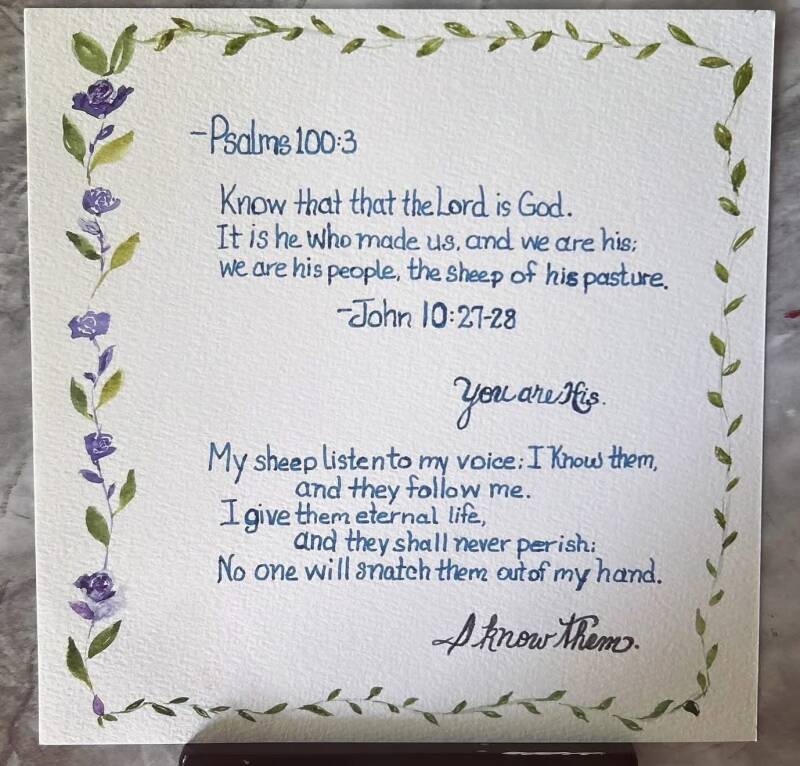 -Psalms 100:3
Know that that the Lord is God.
It is he who made us, and we are his;
we are his people, the sheep of his pasture.
-John 10:27-28
You are His.
My sheep listen to my voice; I Know them,
and they follow me.
I give them eternal life,
and they shall never perish;
No one will snatch them out of my hand.
I know them.